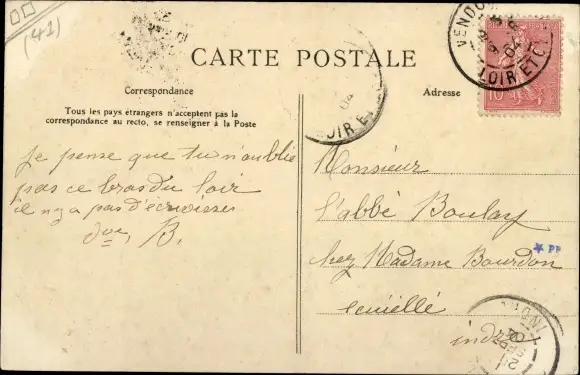 (41)
CARTE POSTALE
VENDOME
04
LOIR ET C.
10
Correspondance
Adresse
Tous les pays étrangers n'acceptent pas la
correspondance au recto, se renseigner à la Poste
04
LOIR E
je pense que tu n'oublie
pas ce bras du loir
il n y a pas d'écrevisses
B.
Monsieur
l'abbé Boulay
chez Madame Bourdon
PF
indre